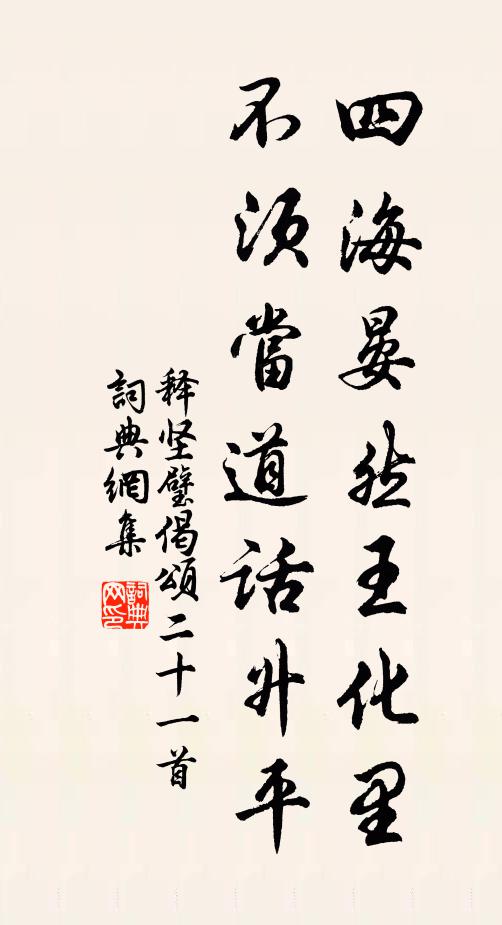 四海晏然王化里
不须當道話升平
释坚璧偈頌二十一首
詞典網集
詞典网印